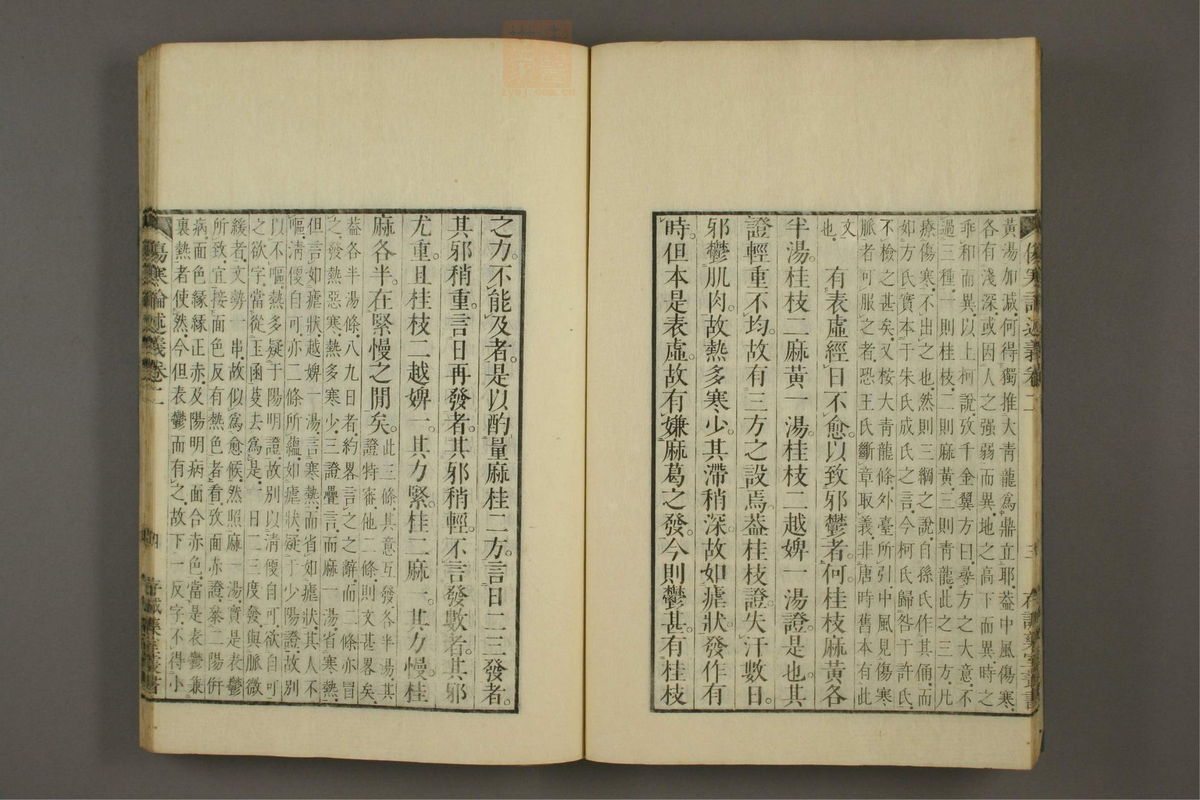 黃湯加減何得獨推大青龍爲鼎立耶葢中風傷寒
各有淺深或因人之強弱而異地之高下而異時之
乖和而異以上柯說攷千金翼方曰尋方之大意不
過三種一則桂枝二則麻黃三則青龍此之三方凡
療傷寒不出之也然則三綱之說自孫氏作其俑而
如方氏實本于朱氏成氏之言今柯氏歸咎于許氏
不檢之甚矣又桉大青龍條外臺所引中風見傷寒
脈者可服之者恐王氏斷章取義非唐時舊本有此
文
也
有表虛經日不愈以致邪鬱者何桂枝麻黃各
半湯桂枝二麻黃一湯桂枝二越婢一湯證是也其
證輕重不均故有三方之設焉葢桂枝證失汗數日
邪鬱肌肉故熱多寒少其滯稍深故如瘧狀發作有
時但本是表虛故有嫌麻葛之發今則鬱甚有桂枝
傷寒論述義卷二
三
存誠藥室叢書
之力不能及者是以酌量麻桂二方言日二三發者
其邪稍重言日再發者其邪稍輕不言發數者其邪
尤重且桂枝二越婢一其力緊桂二麻一其力慢桂
麻各半在緊慢之閒矣此三條其意互發各半湯其
證特審他二條則文甚畧矣
葢各半湯條八九日者約畧言之之辭而二條亦冒
之發熱惡寒熱多寒少三證疊言而麻一湯省寒熱
但言如瘧狀越婢一湯言寒熱而省如瘧狀其人不
嘔清便自可亦二條所蘊如瘧狀疑于少陽證故別
以不嘔熱多疑于陽明證故別以清便自可欲自可
之欲字當從玉函芟去爲是一日二三度發與脈微
緩者文勢一串故似爲愈候然照麻一湯實是表鬱
所致宜接面色反有熱色者看攷面赤證綦二陽倂
病面色緣緣正赤及陽明病面合赤色當是表鬱兼
裏熱者使然今但表鬱而有之故下一反字不得小
傷寒論述義卷二
四
存誠藥室叢書